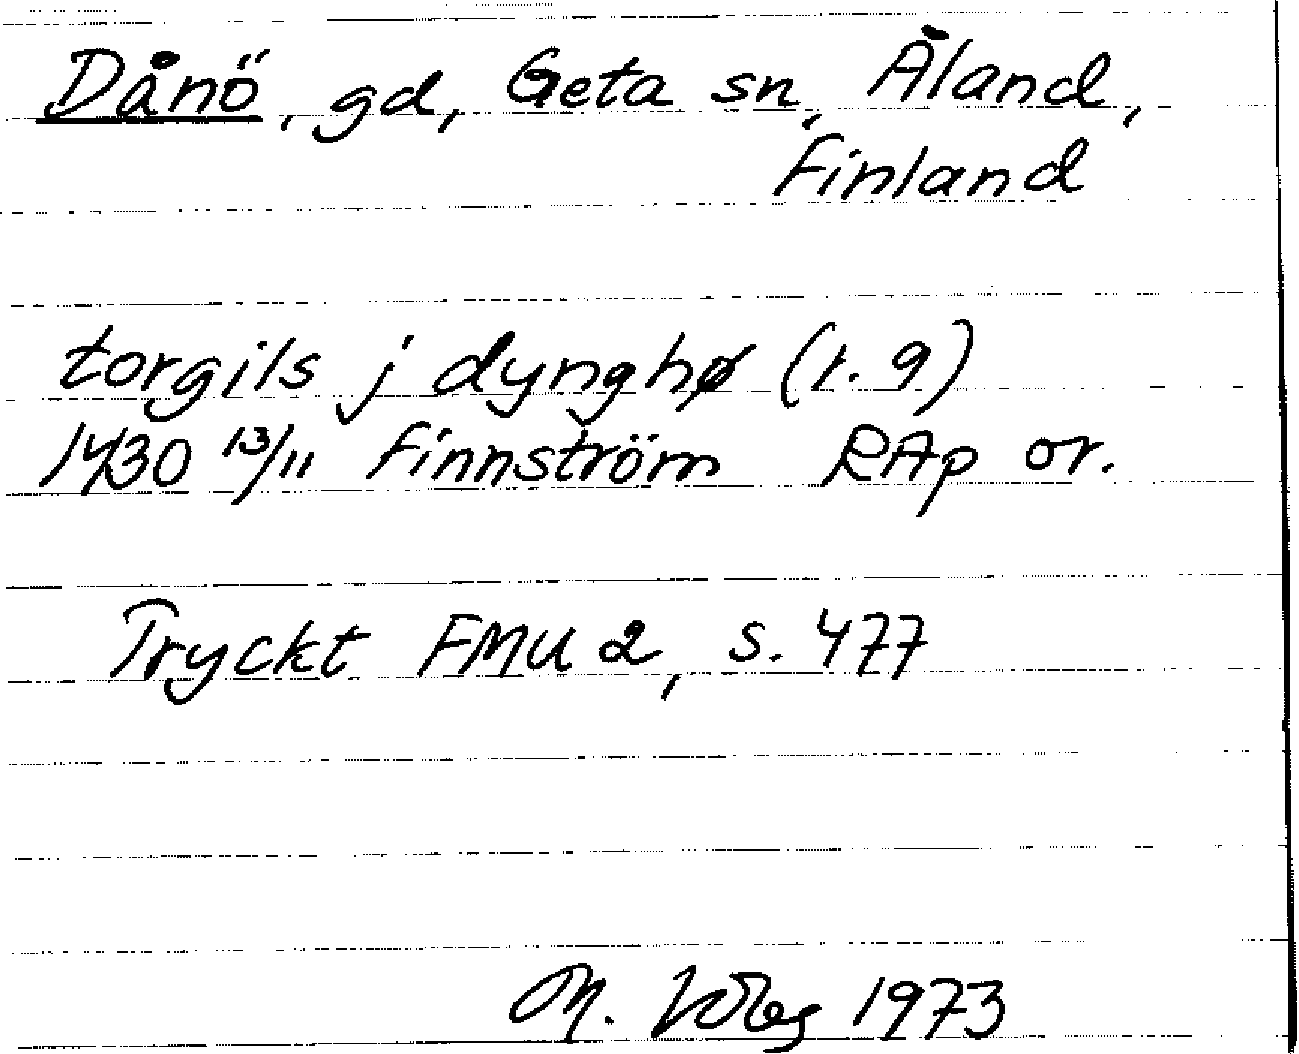 Dånö, gd, Geta sn, Åland,
Finland
torgils j dynghø (r. 9)
1430 13/11 Finnström RAp or.
Tryckt FMU 2, s. 477
M. 1973